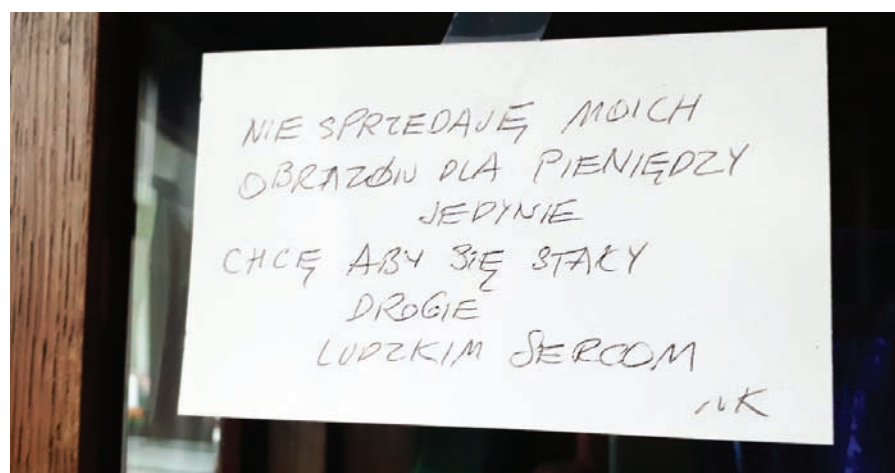 NIE SPRZEDAJĘ MOICH
OBRAZÓW DLA PIENIĘDZY
JEDYNIE
CHCĘ ABY SIĘ STAŁY
DROGIE
LUDZKIM SERCOM
NK